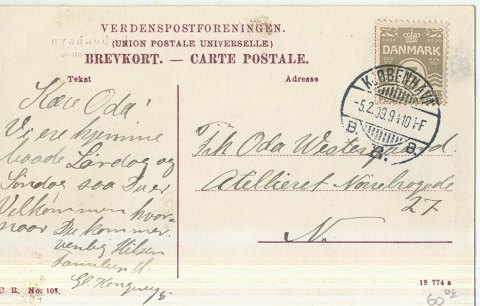 VERDENSPOSTFORENINGEN.
(UNION POSTALE UNIVERSELLE.)
BREVKORT. — CARTE POSTALE.
Tekst
Adresse
DANMARK
KJØBENHAVN
-5.2.09.9¼10 F
B. B. B.
Kære Oda!
Vi ere hjemme
baade Lørdag og
Søndag saa Du er
Velkommen hvor-
naar Du kommer.
venlig Hilsen
familien H.
Gl. Kongevej
Frk Oda
Atellieret Nørrebrogade
27
N.
C. R. No: 105.
19 774 a
60